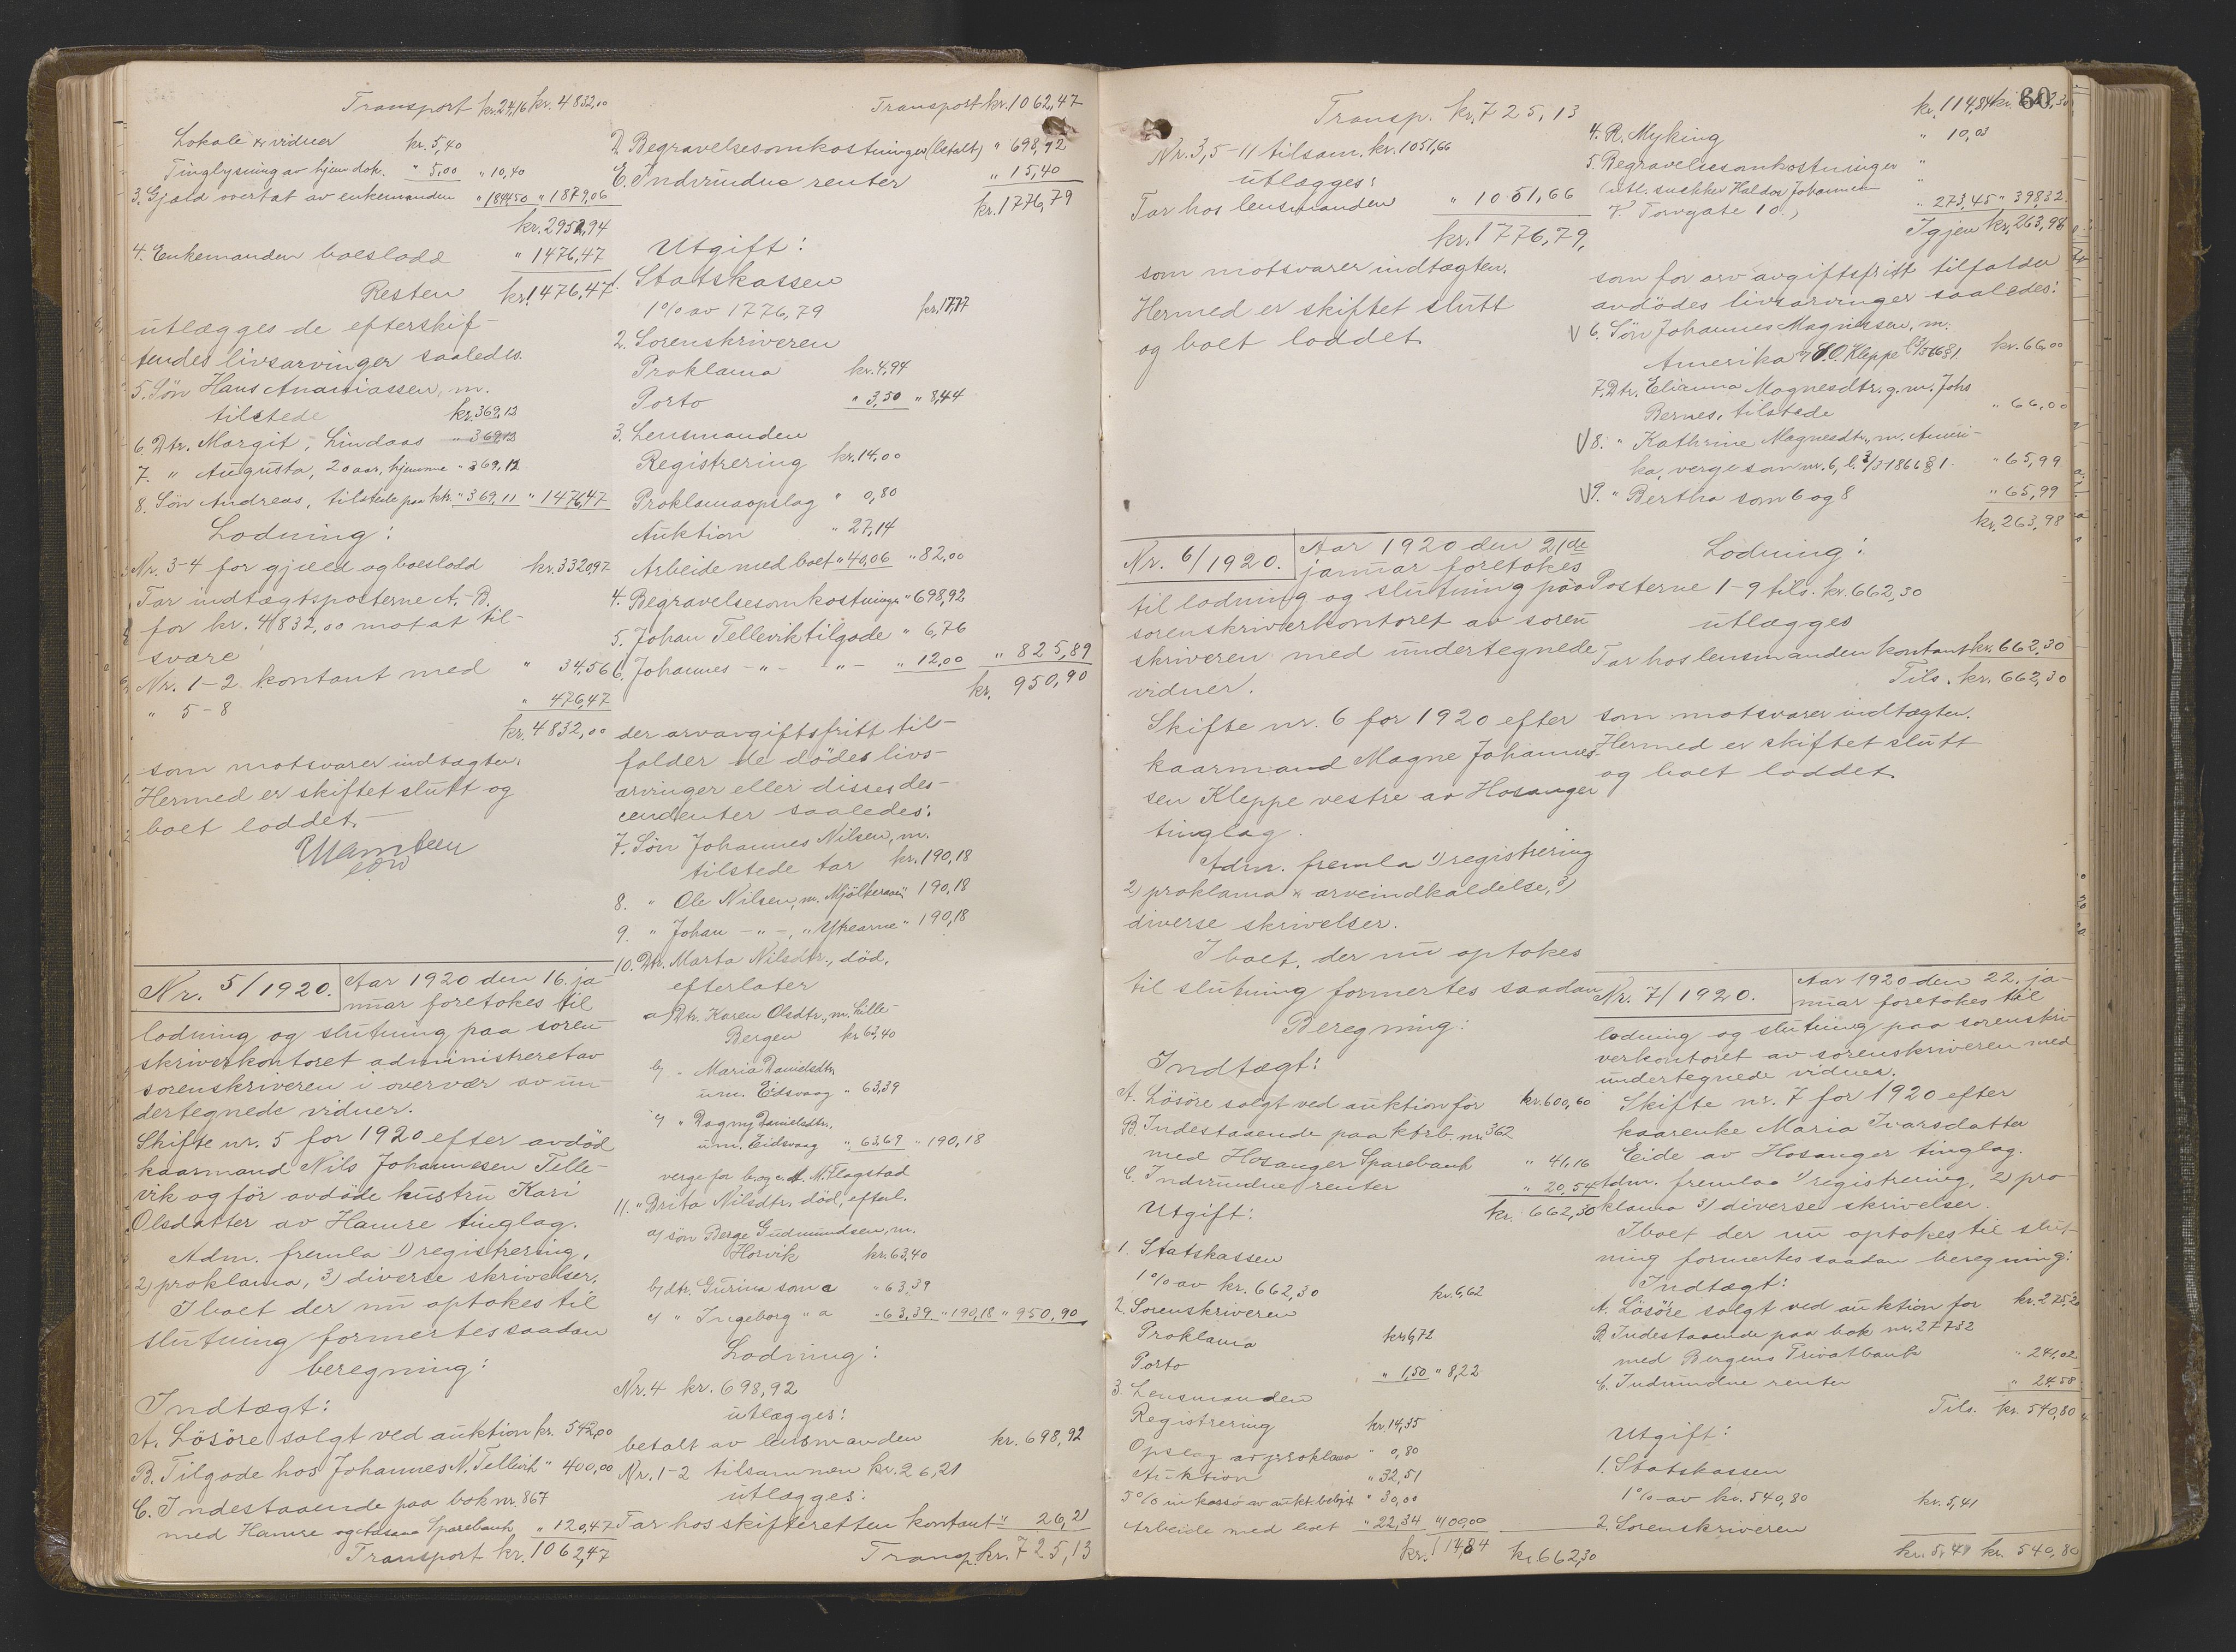 Transport kr. 24,16 kr. 4832,00
Lokale & vidner kr. 5,40
Tinglysning av hjem.dok. " 5,00 " 10,40
3. Gjæld overtat av enkemanden " 1844,50 " 1879,06
kr. 2952,94
4. Enkemanden boeslodd " 1476,47
Resten kr. 1476,47
utlægges de efterskif-
tendes livsarvinger saaledes.
5. Søn Hans Ananiassen, m.
tilstede kr. 369,12
6. Dtr. Margit, Lindaas " 369,12
7. " Augusta, 20 aar, hjemme " 369,12
8. Søn Andreas, tilstede paa ktr. " 369,11 " 1476,47
Lodning:
Nr. 3-4 for gjæld og boeslodd kr. 3320,97
Tar indtægtsposterne A.-B.
for kr. 4832,00 mot at til-
svare
Nr. 1-2 kontant med " 34,56
" 5-8 " 476,47
kr. 4832,00
som motsvarer indtægten.
Hermed er skiftet slutt og
boet loddet.
Nr. 5/1920. Aar 1920 den 16. ja-
nuar foretokes til
lodning og slutning paa soren-
skriverkontoret administreret av
sorenskriveren i overvær av un-
dertegnede vidner.
Skifte nr. 5 for 1920 efter avdød
kaarmand Nils Johannessen Telle-
vik og før avdøde hustru Kari
Olsdatter av Hamre tinglag.
Adm. fremla 1) registrering,
2) proklama, 3) diverse skrivelser.
I boet der nu optokes til
slutning formertes saadan
beregning:
Indtægt:
A. Løsøre solgt ved auktion kr. 542,00
B. Tilgode hos Johannes N. Tellevik " 400,00
C. Indestaaende paa bok nr. 867
med Hamre og Aasane Sparebank " 120,47
Transport kr. 1062,47
Transport kr. 1062,47
D. Begravelsesomkostninger (betalt) " 698,92
E. Indvundne renter " 15,40
kr. 1776,79
Utgift:
1. Statskassen
1% av 1776,79 kr. 17,77
2. Sorenskriveren
Proklama kr. 4,94
Porto " 3,50 " 8,44
3. Lensmanden
Registrering kr. 14,00
Proklamaopslag " 0,80
Auktion " 27,14
Arbeide med boet " 40,06 " 82,00
4. Begravelsesomkostninger " 698,92
5. Johan Tellevik tilgode " 6,76
6. Johannes -"- -"- " 12,00 " 825,89
kr. 950,90
der arvavgiftsfritt til-
falder de dødes livs-
arvinger eller disses des-
cendenter saaledes:
7. Søn Johannes Nilsen, m.
tilstede tar kr. 190,18
8. " Ole Nilsen, m. Mjölkeraaen " 190,18
9. " Johan -"-, " 190,18
10. Dtr. Marta Nilsdtr., død,
efterlater
a) Dtr. Karen Olsdtr., m. Lille-
Bergen kr. 63,40
b) " Maria Danielsdtr.
um. Eidsvaag " 63,39
c) " Dagny Danielsdtr.
um. Eidsvaag " 63,69 " 190,18
verge for b. og c. A. M. Flagstad
11. " Brita Nilsdtr. død, efterl.
a) søn Berge Gudmundsen, m.
Horvik kr. 63,40
b) dtr. Gurina som a " 63,39
c) " Ingeborg " a " 63,39 " 190,18 " 950,90
Lodning:
Nr. 4 kr. 698,92
utlægges:
betalt av lensmanden kr. 698,92
Nr. 1-2 tilsammen kr. 26,21
utlægges:
Tar hos skifteretten kontant " 26,21
Transp. kr. 725,13
Transp. kr. 725,13
Nr. 3, 5-11 tilsam. kr. 1051,66
utlægges:
Tar hos lensmanden " 1051,66
kr. 1776,79,
som motsvarer indtægten.
Hermed er skiftet slutt
og boet loddet.
Nr. 6/1920. Aar 1920 den 21de
januar foretokes
til lodning og slutning paa
sorenskriverkontoret av soren-
skriveren med undertegnede
vidner.
Skifte nr. 6 for 1920 efter
kaarmand Magne Johannes-
sen Kleppe vestre av Hosanger
tinglag.
Adm. fremla 1) registrering
2) proklama & arveindkaldelse, 3)
diverse skrivelser.
I boet, der nu optokes
til slutning formertes saadan
Beregning:
Indtægt:
A. Løsøre solgt ved auktion for kr. 600,60
B. Indestaaende paa ktrb. nr. 362
med Hosanger Sparebank " 41,16
C. Indvundne renter " 20,54
kr. 662,30
Utgift:
1. Statskassen
1% av kr. 662,30 kr. 6,62
2. Sorenskriveren
Proklama kr. 6,72
Porto " 1,50 " 8,22
3. Lensmanden
Registrering kr. 14,35
Opslag av proklama " 0,80
Auktion " 32,51
5% inkasso av aukt. beløpet " 30,00
Arbeide med boet " 22,34 " 100,00
kr. 114,84 kr. 662,30
60
kr. 114,84 kr. 662,30
4. R. Myking " 10,03
5. Begravelsesomkostninger "
(utl. snekker Haldor Johannesen "
V. Torvgate 10.) " 273,45 " 398,32
Igjen kr. 263,98
som for arv avgiftsfritt tilfalder
avdødes livsarvinger saaledes:
V 6. Søn Johannes Magnesen, m.
Amerika v/ S. O. Kleppe § 1. kr. 66,00
7. Dtr. Elianna Magnesdtr. g. m. Johs
Bernes, tilstede " 66,00
V 8. " Kathrine Magnesdtr., m. Ameri-
ka, verge som nr. 6, l. 3/3-1866 § 1. " 65,99
V 9. " Bertha som 6 og 8 " 65,99
kr. 263,98
Lodning:
Posterne 1-9 tils. kr. 662,30
utlægges
Tar hos lensmanden kontant kr. 662,30
Tils. kr. 662,30
som motsvarer indtægten.
Hermed er skiftet slutt
og boet loddet.
Nr. 7/1920. Aar 1920 den 22. ja-
nuar foretokes til
lodning og slutning paa sorenskri-
verkontoret av sorenskriveren med
undertegnede vidner.
Skifte nr. 7 for 1920 efter
kaarenke Maria Ivarsdatter
Eide av Hosanger tinglag.
Adm. fremlaa 1) registrering, 2) pro-
klama 3) diverse skrivelser.
I boet der nu optokes til slut-
ning formertes saadan beregning:
Indtægt:
A. Løsøre solgt ved auktion for kr. 275,20
B. Indestaaende paa bok nr. 27732
med Bergens Privatbank " 241,02
C. Indvundne renter " 24,58
Tils. kr. 540,80
Utgift:
1. Statskassen
1% av kr. 540,80 kr. 5,41
2. Sorenskriveren
kr. 5,41 kr. 540,80